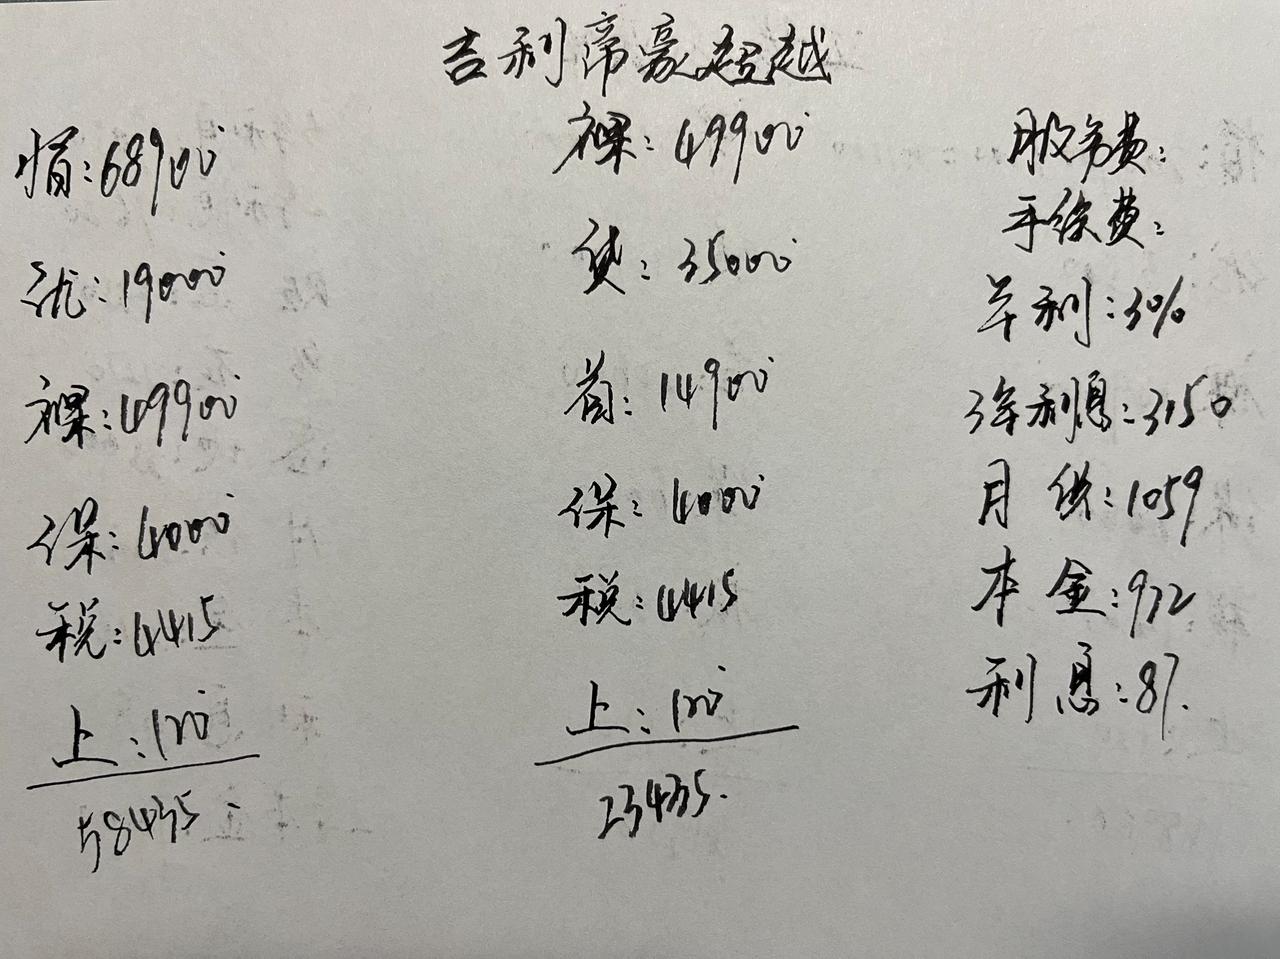 吉利帝豪超越
指:68900
优:19000
裸:49900
保:4000
税:4415
上:120
58435.
裸:49900
贷:35000
首:14900
保:4000
税:4415
上:120
23435.
服务费:
手续费:
年利:3%
3年利息:3150
月供:1059
本金:972
利息:87.